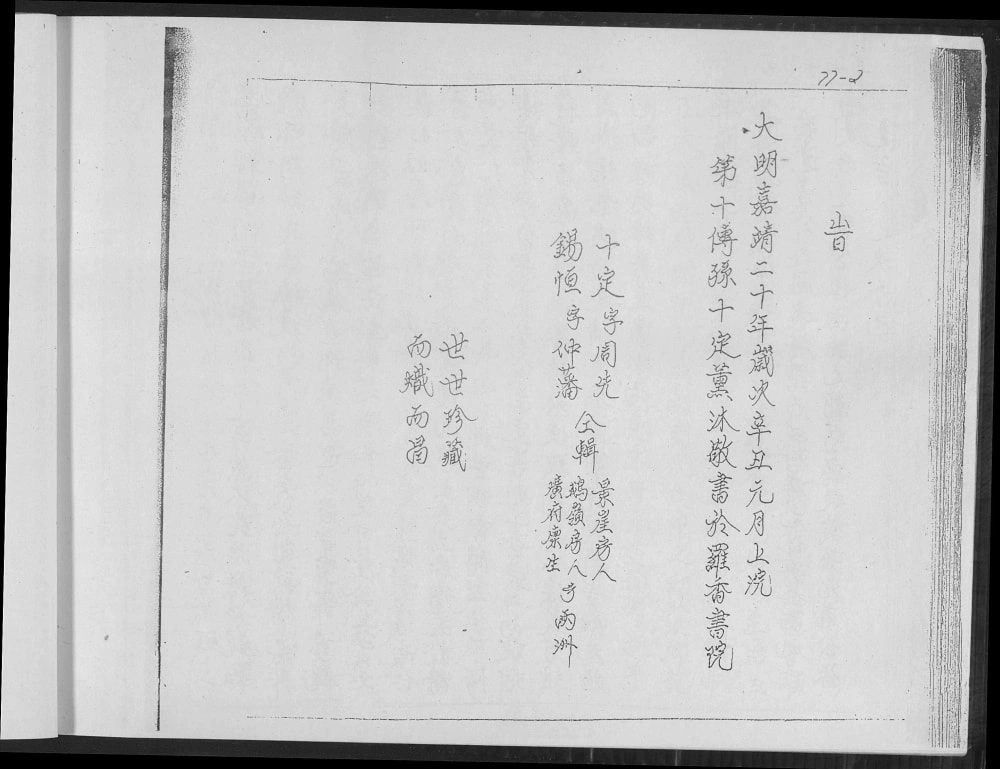 77-2
旹
大明嘉靖二十年歲次辛丑元月上浣
第十傳孫十定薰沐敬書於羅香書院
十定字周先
錫恒字仲藩
仝輯
景崖房人
鵶嶺房人号兩洲
廣府廪生
世世珍藏
而熾而昌